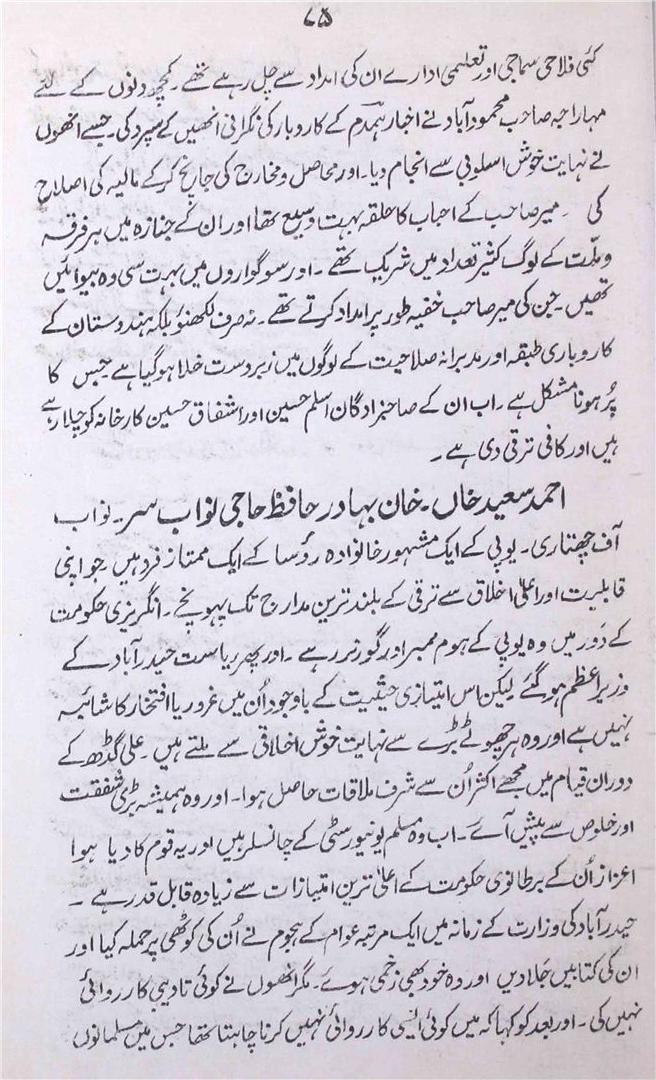 ۷۵
کئی فلاحی سماجی اور تعلیمی ادارے ان کی امداد سے چل رہے تھے۔ کچھ دنوں کے لئے
مہاراجہ صاحب محمودآباد نے اخبار ہمدم کے کاروبار کی نگرانی انھیں کے سپرد کی۔ جسے انھوں
نے نہایت خوش اسلوبی سے انجام دیا۔ اور محاصل و مخارج کی جانچ کر کے مالیہ کی اصلاح
کی ۔ میر صاحب کے احباب کا حلقہ بہت وسیع تھا اور ان کے جنازہ میں ہر فرقہ
و ملّت کے لوگ کثیر تعداد میں شریک تھے ۔ اور سوگواروں میں بہت سی وہ بیوائیں
تھیں۔ جن کی میر صاحب خفیہ طور پر امداد کرتے تھے۔ نہ صرف لکھنؤ بلکہ ہندوستان کے
کاروباری طبقہ اور مدبرانہ صلاحیت کے لوگوں میں زبردست خلا ہو گیا ہے جس کا
پُر ہونا مشکل ہے ۔ اب ان کے صاحبزادگان اسلم حسین اور اشفاق حسین کارخانہ کو چلا رہے
ہیں اور کافی ترقی دی ہے ۔
احمد سعید خاں۔ خان بہادر حافظ حاجی نواب سر۔ نواب
آف چھتاری۔ یوپی کے ایک مشہور خانوادہ رؤسا کے ایک ممتاز فرد ہیں۔ جو اپنی
قابلیت اور اعلیٰ اخلاق سے ترقی کے بلند ترین مدارج تک پہونچے۔ انگریزی حکومت
کے دَور میں وہ یوپی کے ہوم ممبر اور گورنر رہے ۔ اور پھر ریاست حیدرآباد کے
وزیر اعظم ہو گئے لیکن اس امتیازی حیثیت کے باوجود اُن میں غرور یا افتخار کا شائبہ
نہیں ہے اور وہ ہر چھوٹے بڑے سے نہایت خوش اخلاقی سے ملتے ہیں۔ علی گڈھ کے
دوران قیام میں مجھے اکثر اُن سے شرف ملاقات حاصل ہوا۔ اور وہ ہمیشہ بڑی شفقت
اور خلوص سے پیش آئے۔ اب وہ مسلم یونیورسٹی کے چانسلر ہیں اور یہ قوم کا دیا ہوا
اعزاز اُن کے برطانوی حکومت کے اعلیٰ ترین امتیازات سے زیادہ قابل قدر ہے ۔
حیدرآباد کی وزارت کے زمانہ میں ایک مرتبہ عوام کے ہجوم نے اُن کی کوٹھی پر حملہ کیا اور
ان کی کتابیں جلا دیں اور وہ خود بھی زخمی ہوئے۔ مگر انھوں نے کوئی تادیبی کارروائی
نہیں کی ۔ اور بعد کو کہا کہ میں کوئی ایسی کارروائی نہیں کرنا چاہتا تھا جس میں مسلمانوں